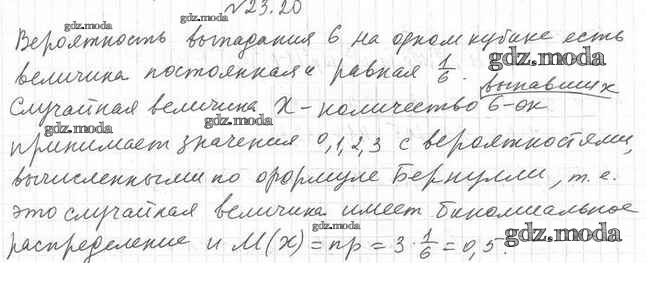 №23.20
gdz.moda
gdz.moda
Вероятность выпадания 6 на одном кубике есть
gdz.moda
величина постоянная и равная 1/6.
gdz.moda
выпавших
Случайная величина X – количество 6-ок
gdz.moda
gdz.moda
принимает значения 0,1,2,3 с вероятностями,
вычисленными по формуле Бернулли, т.е.
это случайная величина имеет биномиальное
распределение и M(X) = np = 3 · 1/6 = 0,5.
gdz.moda
gdz.moda